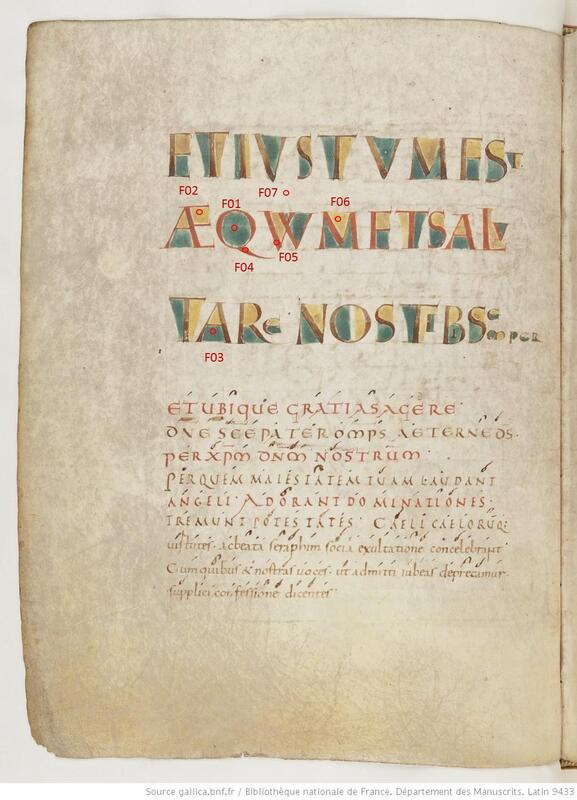 ET IUSTUM EST
F02 F01 F07 F06
ÆQUUM ET SAL
F04 F05
TAR NOS TIBI Semper
F03
ET UBIQUE GRATIAS AGERE
DNE SCE PATER OMPS AETERNE DS.
PER XPM DNM NOSTRUM
PER QUEM MAIESTATEM TUAM LAUDANT
ANGELI. ADORANT DOMINATIONES.
TREMUNT POTESTATES. CAELI CAELORUQ:
uirtutes. ac beata seraphim socia exultatione concelebrant
Cum quibus & nostras uoces. ut admitti iubeas deprecamur.
supplici confessione dicentes
Source gallica.bnf.fr / Bibliothèque nationale de France. Département des Manuscrits. Latin 9433